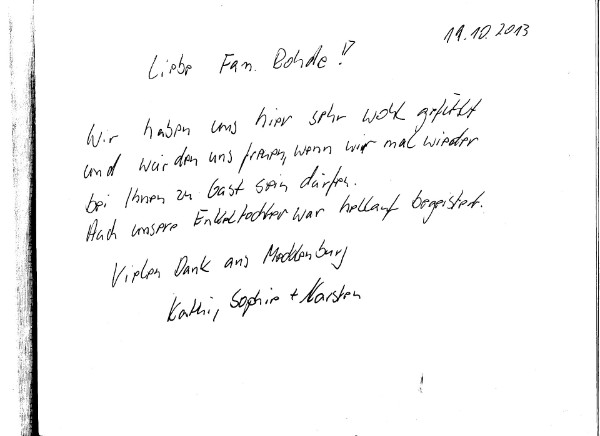 19.10.2013
Liebe Fam. Rohde!
Wir haben uns hier sehr wohl gefühlt
und würden uns freuen, wenn wir mal wieder
bei Ihnen zu Gast sein dürfen.
Auch unsere Enkeltochter war hellauf begeistert.
Vielen Dank aus Mecklenburg
Kathi, Sophie + Karsten